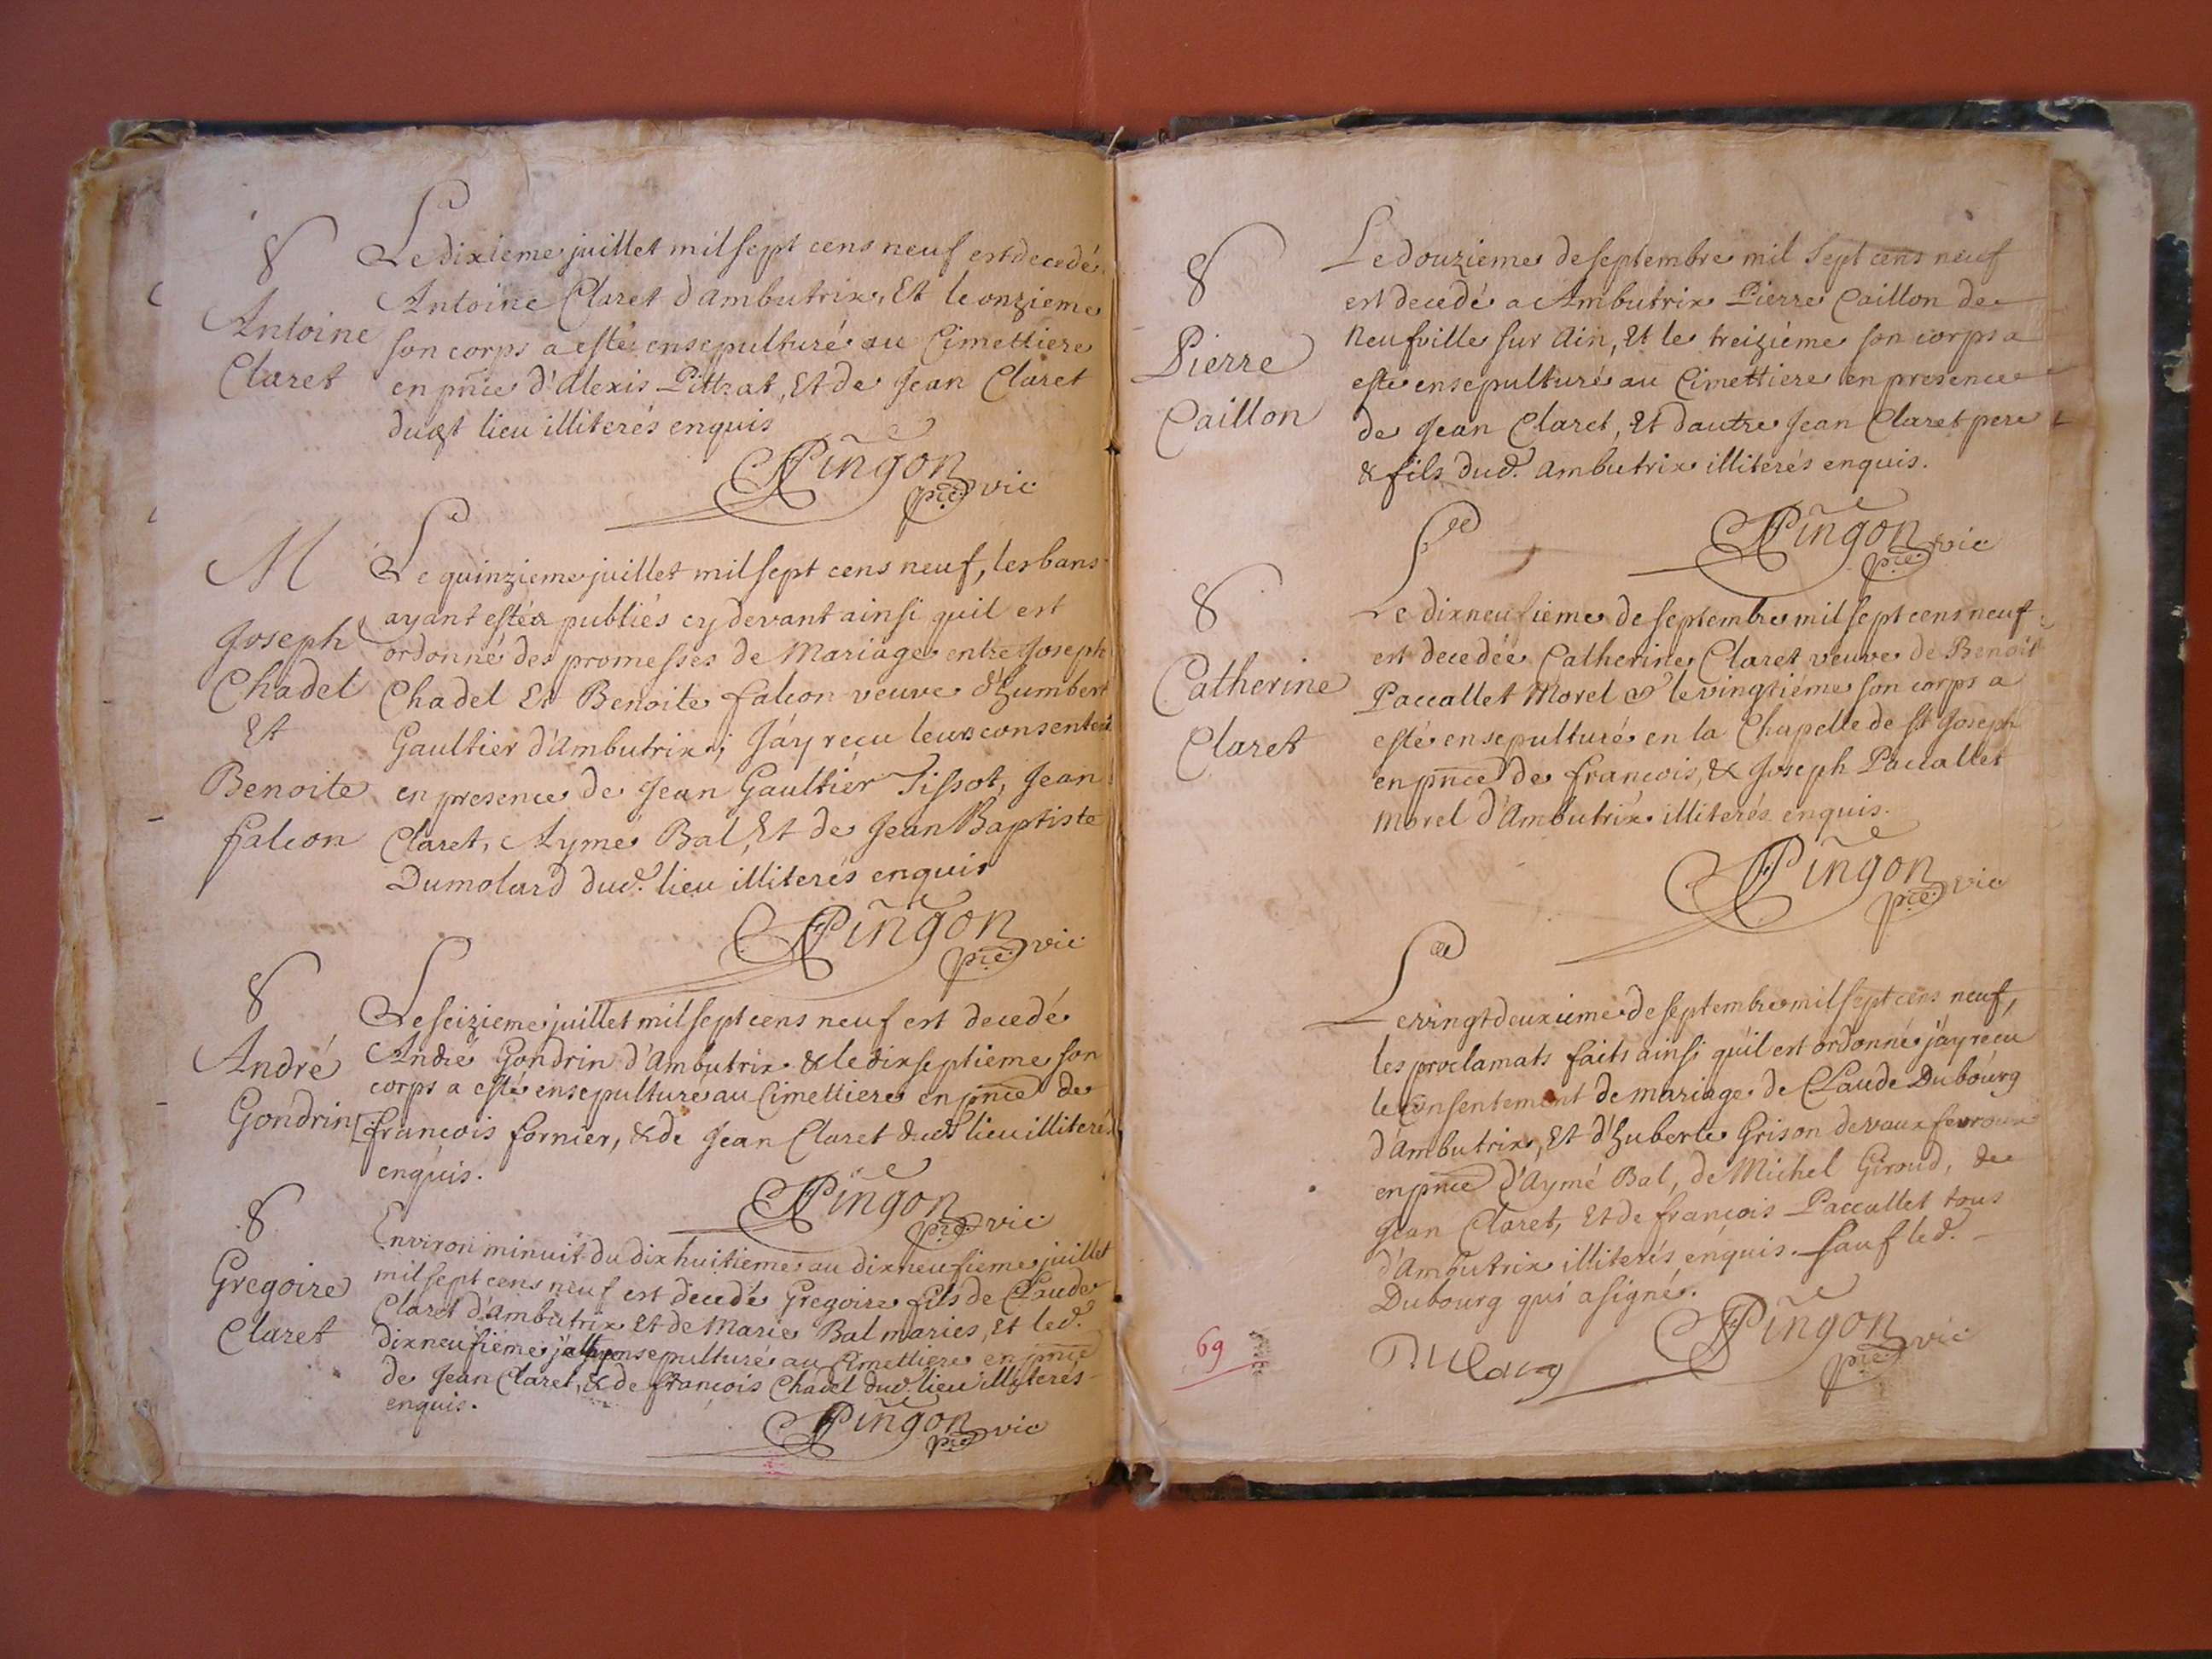 8
Antoine
Claret
Le dixieme juillet mil sept cens neuf est decedé
Antoine Claret d'ambutrix, Et le onzieme
son corps a esté ensepulturé au Cimettiere
en pnce d'Alexis Pittrat, Et de Jean Claret
dudt lieu illiterés enquis
Pingon
pre vic
M
Joseph
Chadel
Et
Benoite
falcon
Le quinzieme juillet mil sept cens neuf, les bans
ayant estés publiés cy devant ainsi quil est
ordonné des promesses de Mariage entre Joseph
Chadel Et Benoite falcon veuve d'humbert
Gaultier d'Ambutrix; J'ay reçu leurs consentemt
en presence de Jean Gaultier Tissot, Jean
Claret, Aymé Bal, Et de Jean Baptiste
Dumolard dud. lieu illiterés enquis
Pingon
pre vic
8
André
Gondrin
Le seizieme juillet mil sept cens neuf est decedé
André Gondrin d'Ambutrix & le dix septieme son
corps a esté ensepulturé au Cimettiere en pnce de
francois fornier, & de Jean Claret dud lieu illiterés
enquis.
Pingon
pre vic
8
Gregoire
Claret
Environ minuit du dix huitieme au dix neufieme juillet
mil sept cens neuf est decedé Gregoire fils de Claude
Claret d'Ambutrix Et de Marie Bal maries, Et led.
dix neufieme j'ay ensepulturé au Cimettiere en pnce
de Jean Claret, & de francois Chadel dud. lieu illiterés
enquis.
Pingon
pre vic
8
Pierre
Caillon
Le douzieme de septembre mil sept cens neuf
est decedé a Ambutrix Pierre Caillon de
Neufville sur Ain, Et le treizième son corps a
esté ensepulturé au Cimettiere en presence
de Jean Claret, Et d'autre Jean Claret pere
& fils dud. Ambutrix illiterés enquis.
Pingon
pre vic
8
Catherine
Claret
Le dix neufieme de septembre mil sept cens neuf
est decedée Catherine Claret veuve de Benoit
Paccallet Morel & le vingtiéme son corps a
esté ensepulturé en la Chapelle de st Joseph
en pnce de francois, & Joseph Paccallet
Morel d'Ambutrix illiterés enquis.
Pingon
pre vic
Le vingt deuxieme de septembre mil sept cens neuf,
les proclamats faits ainsi qu'il est ordonné j'ay reçu
le consentement de mariage de Claude Dubourg
d'Ambutrix, Et d'huberte Grison de vaux fevroux
en pnce d'Aymé Bal, de Michel Giroud, de
Jean Claret, Et de francois Paccallet tous
d'Ambutrix illiterés enquis. Sauf led.
Dubourg qui a signé.
Pingon
pre vic
69